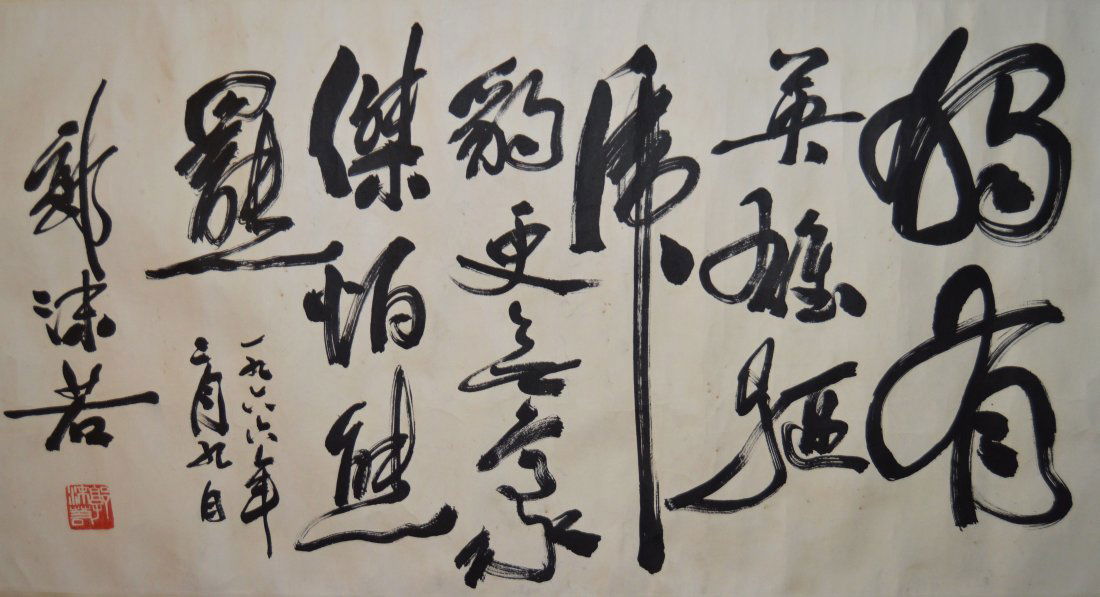 獨有
英雄驅
虎
豹更無豪
傑怕熊
羆
一九六六年
二月九日
郭沫若